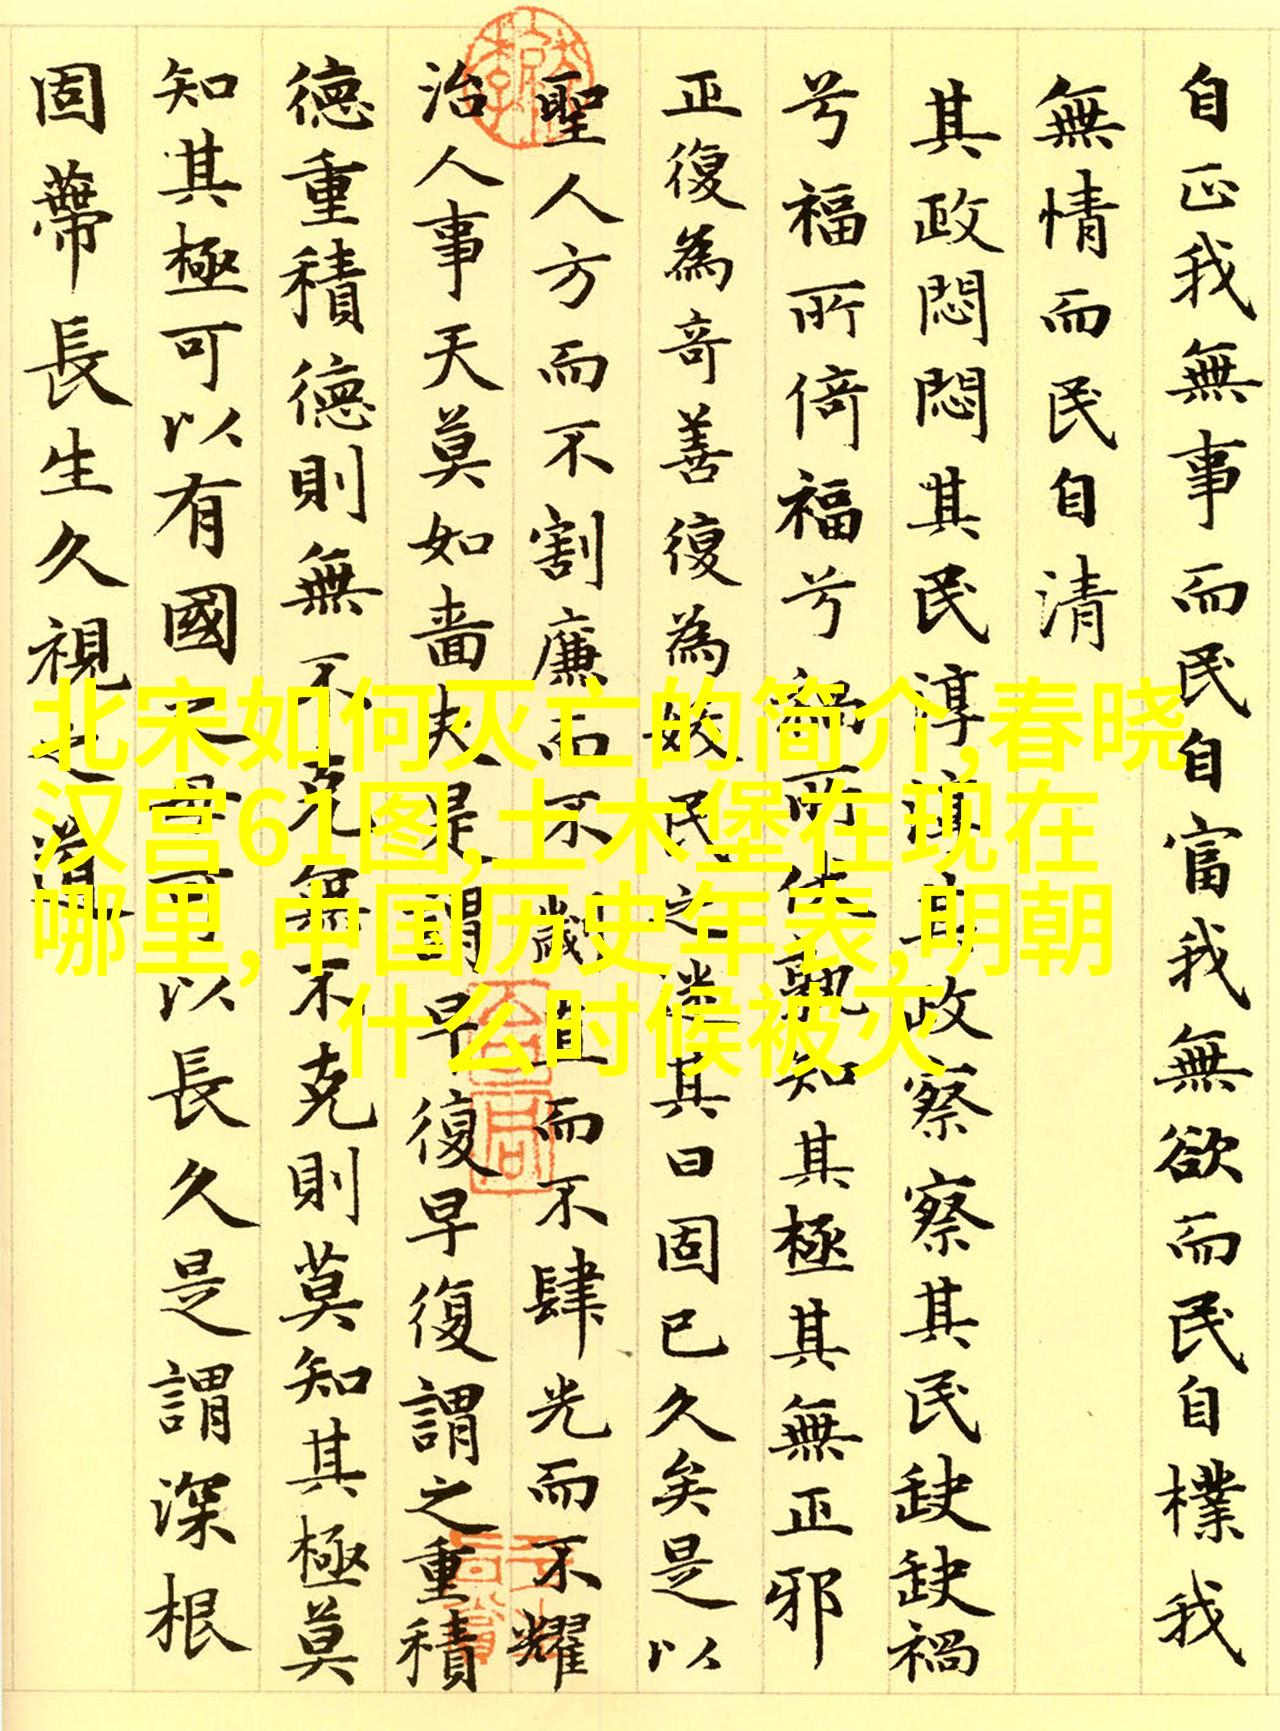 自正我無事而民自富我無欲而民自樸我
無情而民自清
其政悶悶其民淳淳其政察察其民缺缺禍
兮福所倚福兮禍所伏孰知其極其無正邪
正復為奇善復為妖民之迷其日固已久矣是以
聖人方而不割廉而不劌直而不肆光而不耀
治人事天莫如嗇夫是謂早復早復謂之重積
德重積德則無不克無不克則莫知其極莫
知其極可以有國之母可以長久是謂深根
固蔕長生久視之道
北宋如何灭亡的简介,春晓
汉宫61图,土木堡在现在
哪里,中国历史年表,明朝
什么时候被灭